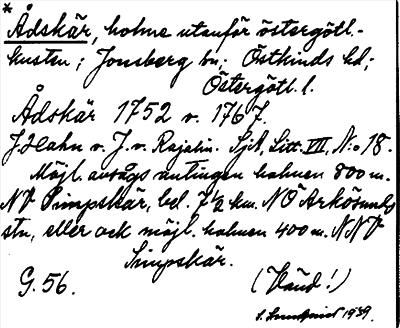 * Ådskär, holme utanför östergötl.-
kusten; Jonsberg sn; Östkinds hd;
Östergötl. l.
Ådskär 1752 v. 1767.
J. Hahn v. J. v. Rajalin. Sjk, Litt. VII, N:o 18.
Möjl. avsågs antingen holmen 800 m.
NV Simpskär, bel. 7 1/2 km. NÖ Arkösunds
stn, eller ock möjl. holmen 400 m. NNV
Simpskär.
G. 56. (Vänd!)
1939.